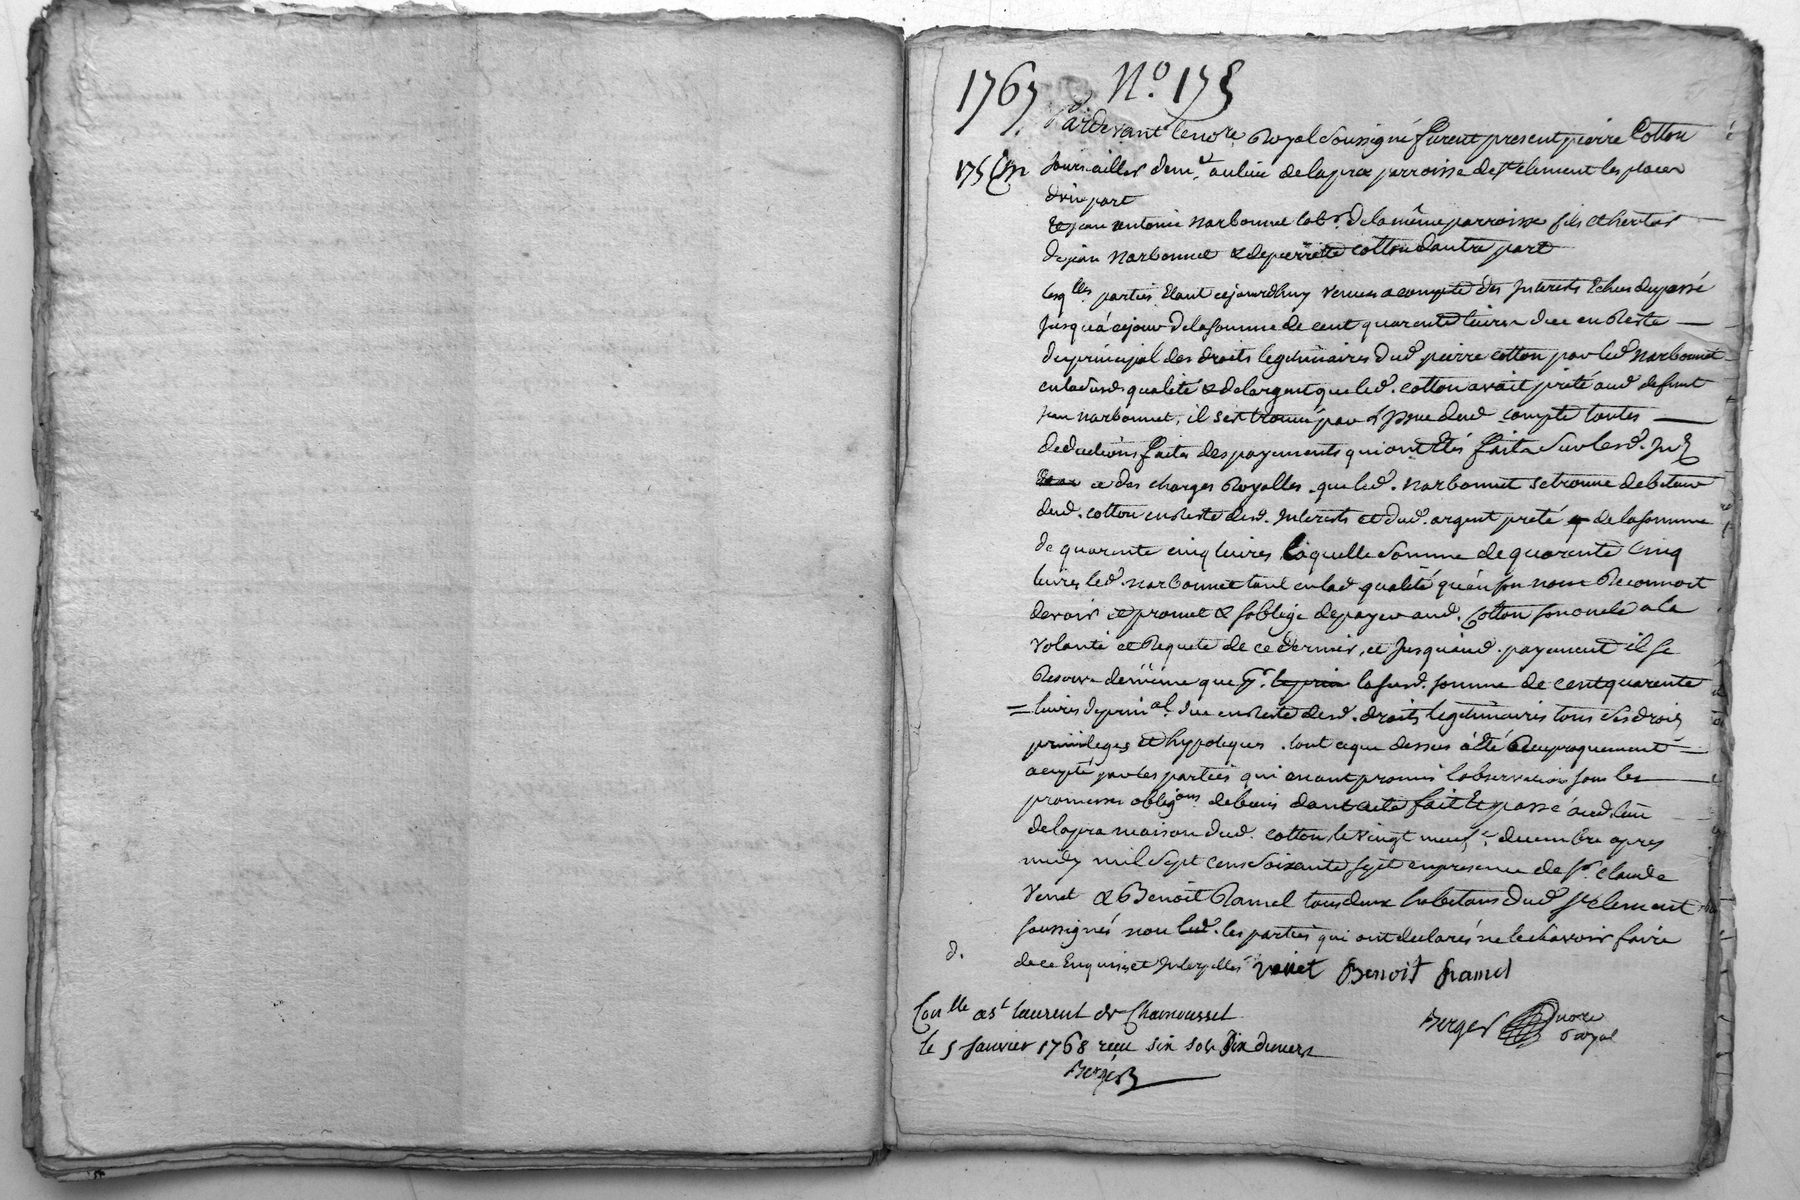 1767. No. 175
Pardevant le nore. Royal soussigné furent present pierre Cotton
175
Journailler dem.t au lieu de la parroisse de st Clement les places
d'une part
Et jean antoine Narbonnet lab.r de la même parroisse fils et heritier
de jean Narbonnet & de pierrette Cotton d'autre part
lesq.lles parties etant cejourdhuy venues a compte des Interests Echus du passé
Jusqu'à ce jour de la somme de cent quarente livres due en Reste
du principal des droits legitimaires dud. pierre Cotton par led. Narbonnet
en lad. susd. qualité & de l'argent que led. Cotton avait prêté aud. defunt
Jean Narbonnet, il s'est trouvé par l'Issue dud. compte toutes
deductions faites des payements qui ont étés faits sur lesd. Int
et des charges Royalles que led. Narbonnet se trouve debiteur
dud. Cotton en Reste desd. Interests et dud. argent preté de la somme
de quarente cinq livres laquelle somme de quarente cinq
livres led. Narbonnet tant en lad. qualité qu'en son nom Reconnoit
devoir et promet & s'oblige de payer aud. Cotton son oncle a la
volonté et Requete de ce dernier, et Jusqu'aud. payement il se
Reserve de même que pr. le prin la susd. somme de cent quarente
= livres de prin.al due en Reste desd. droits legitimaires tous ses droits
privileges et hypoteques. tout ce que dessus a été Reciproquement
accepté par les parties qui en ont promis l'observation sous les
promesses oblig.ons de biens dont acte fait Et passé aud. lieu
de la pra maison dud. Cotton, le vingt neuf.e decembre apres
midy mil sept cens soixante sept en presence de sr. Claude
Venet & Benoit Ramel tous deux habitans dud. st Clement
soussignés non les parties qui ont declarés ne le sçavoir faire
d.
de ce Enquis et Interpellés Venet Benoit Ramel
Con.lle a st Laurent de Chamousset
Berger nore Royal
le 5 Janvier 1768 reçu six sols Dix deniers
Berger